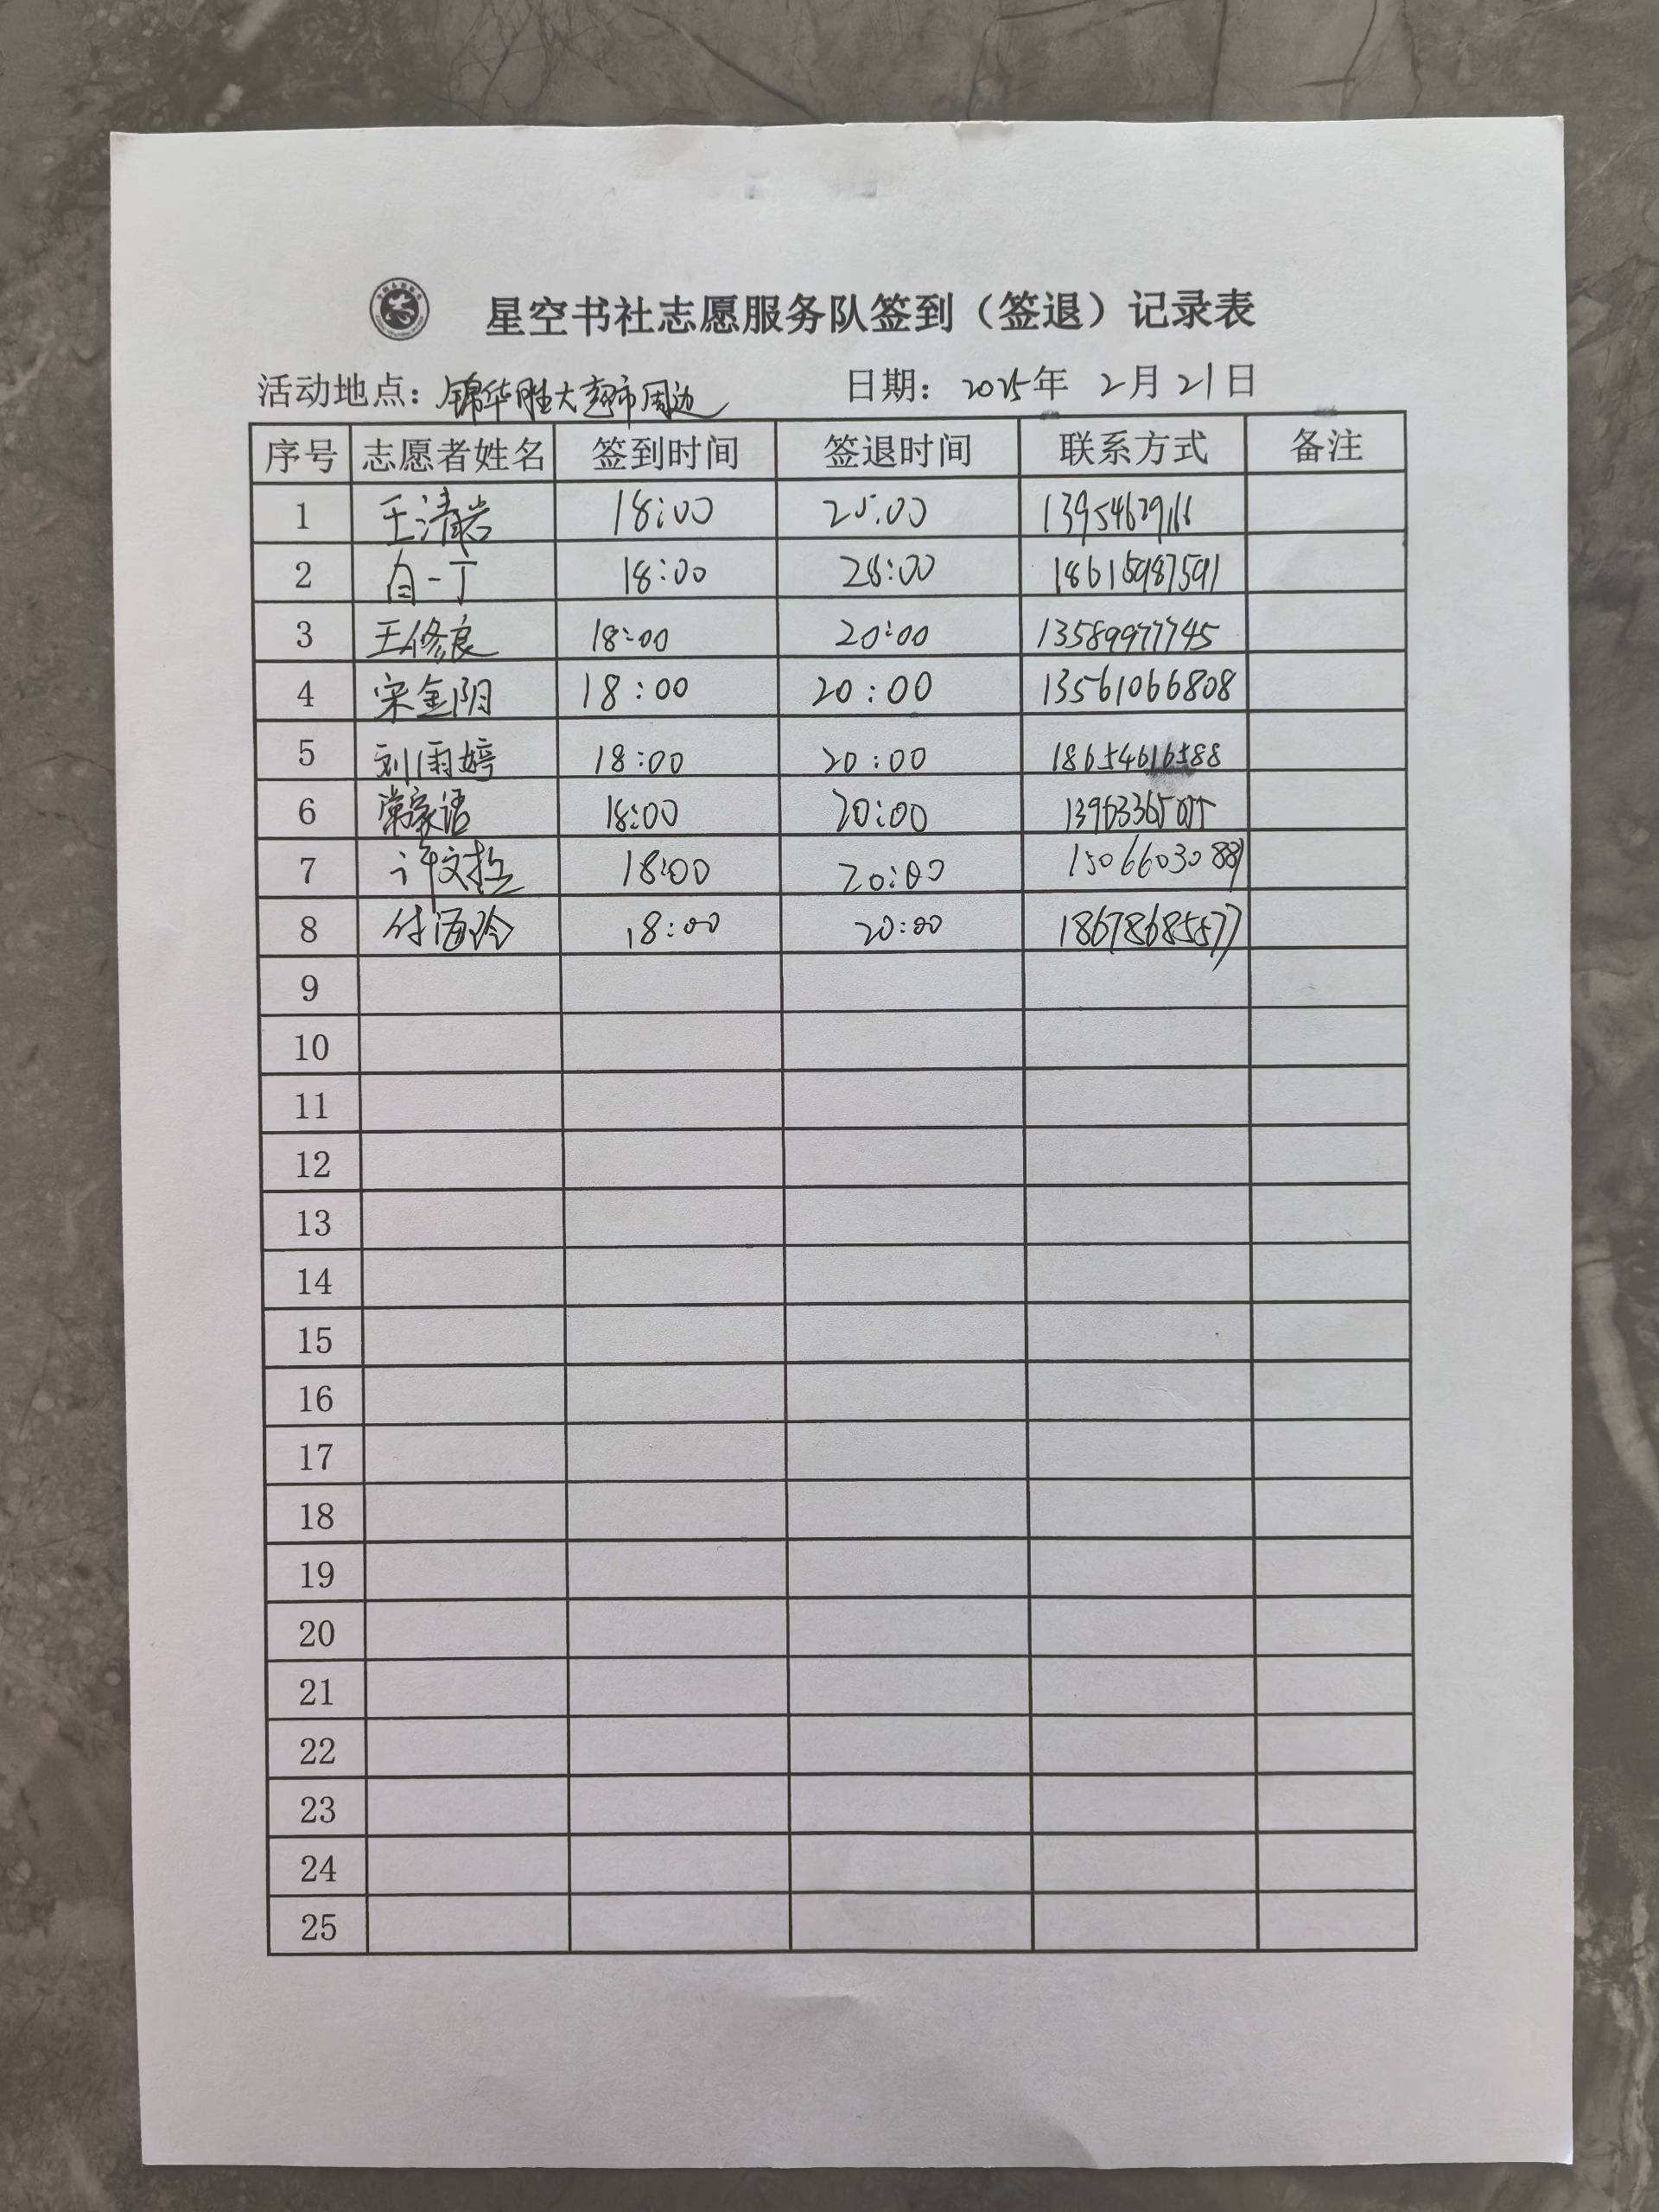 星空书社志愿服务队签到（签退）记录表
活动地点：锦华胜大超市周边 日期：2025年 2月 21日
序号 志愿者姓名 签到时间 签退时间 联系方式 备注
1 王清岩 18:00 20:00
2 白一丁 18:00 20:00 18615987591
3 王修良 18:00 20:00 13589977745
4 宋金阴 18:00 20:00 13561066808
5 刘雨婷 18:00 20:00 18654616588
6 常家语 18:00 20:00
7 18:00 20:00
8 付海玲 18:00 20:00 18678685577
9
10
11
12
13
14
15
16
17
18
19
20
21
22
23
24
25